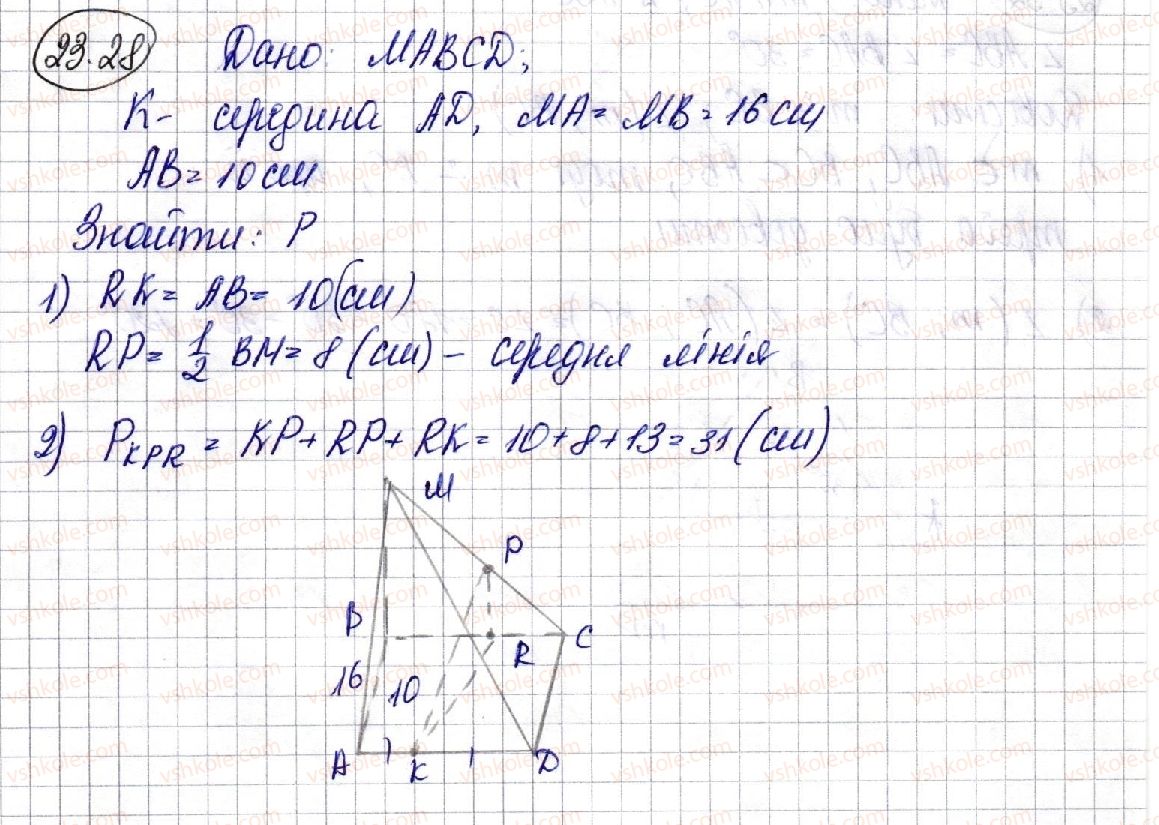 23.28 Дано: MABCD;
K- середина AD, MA= MB= 16 см
AB= 10 см
Знайти: P
1) RK= AB= 10(см)
RP= 1/2 BM= 8 (см) - середня лінія
2) P KPR = KP+ RP+ RK= 10+8+13=31 (см)
M
P
B
R
C
16
10
A
K
D
vshkole.com